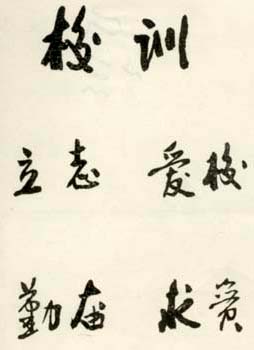 校训
立志 爱校
勤奋 求實